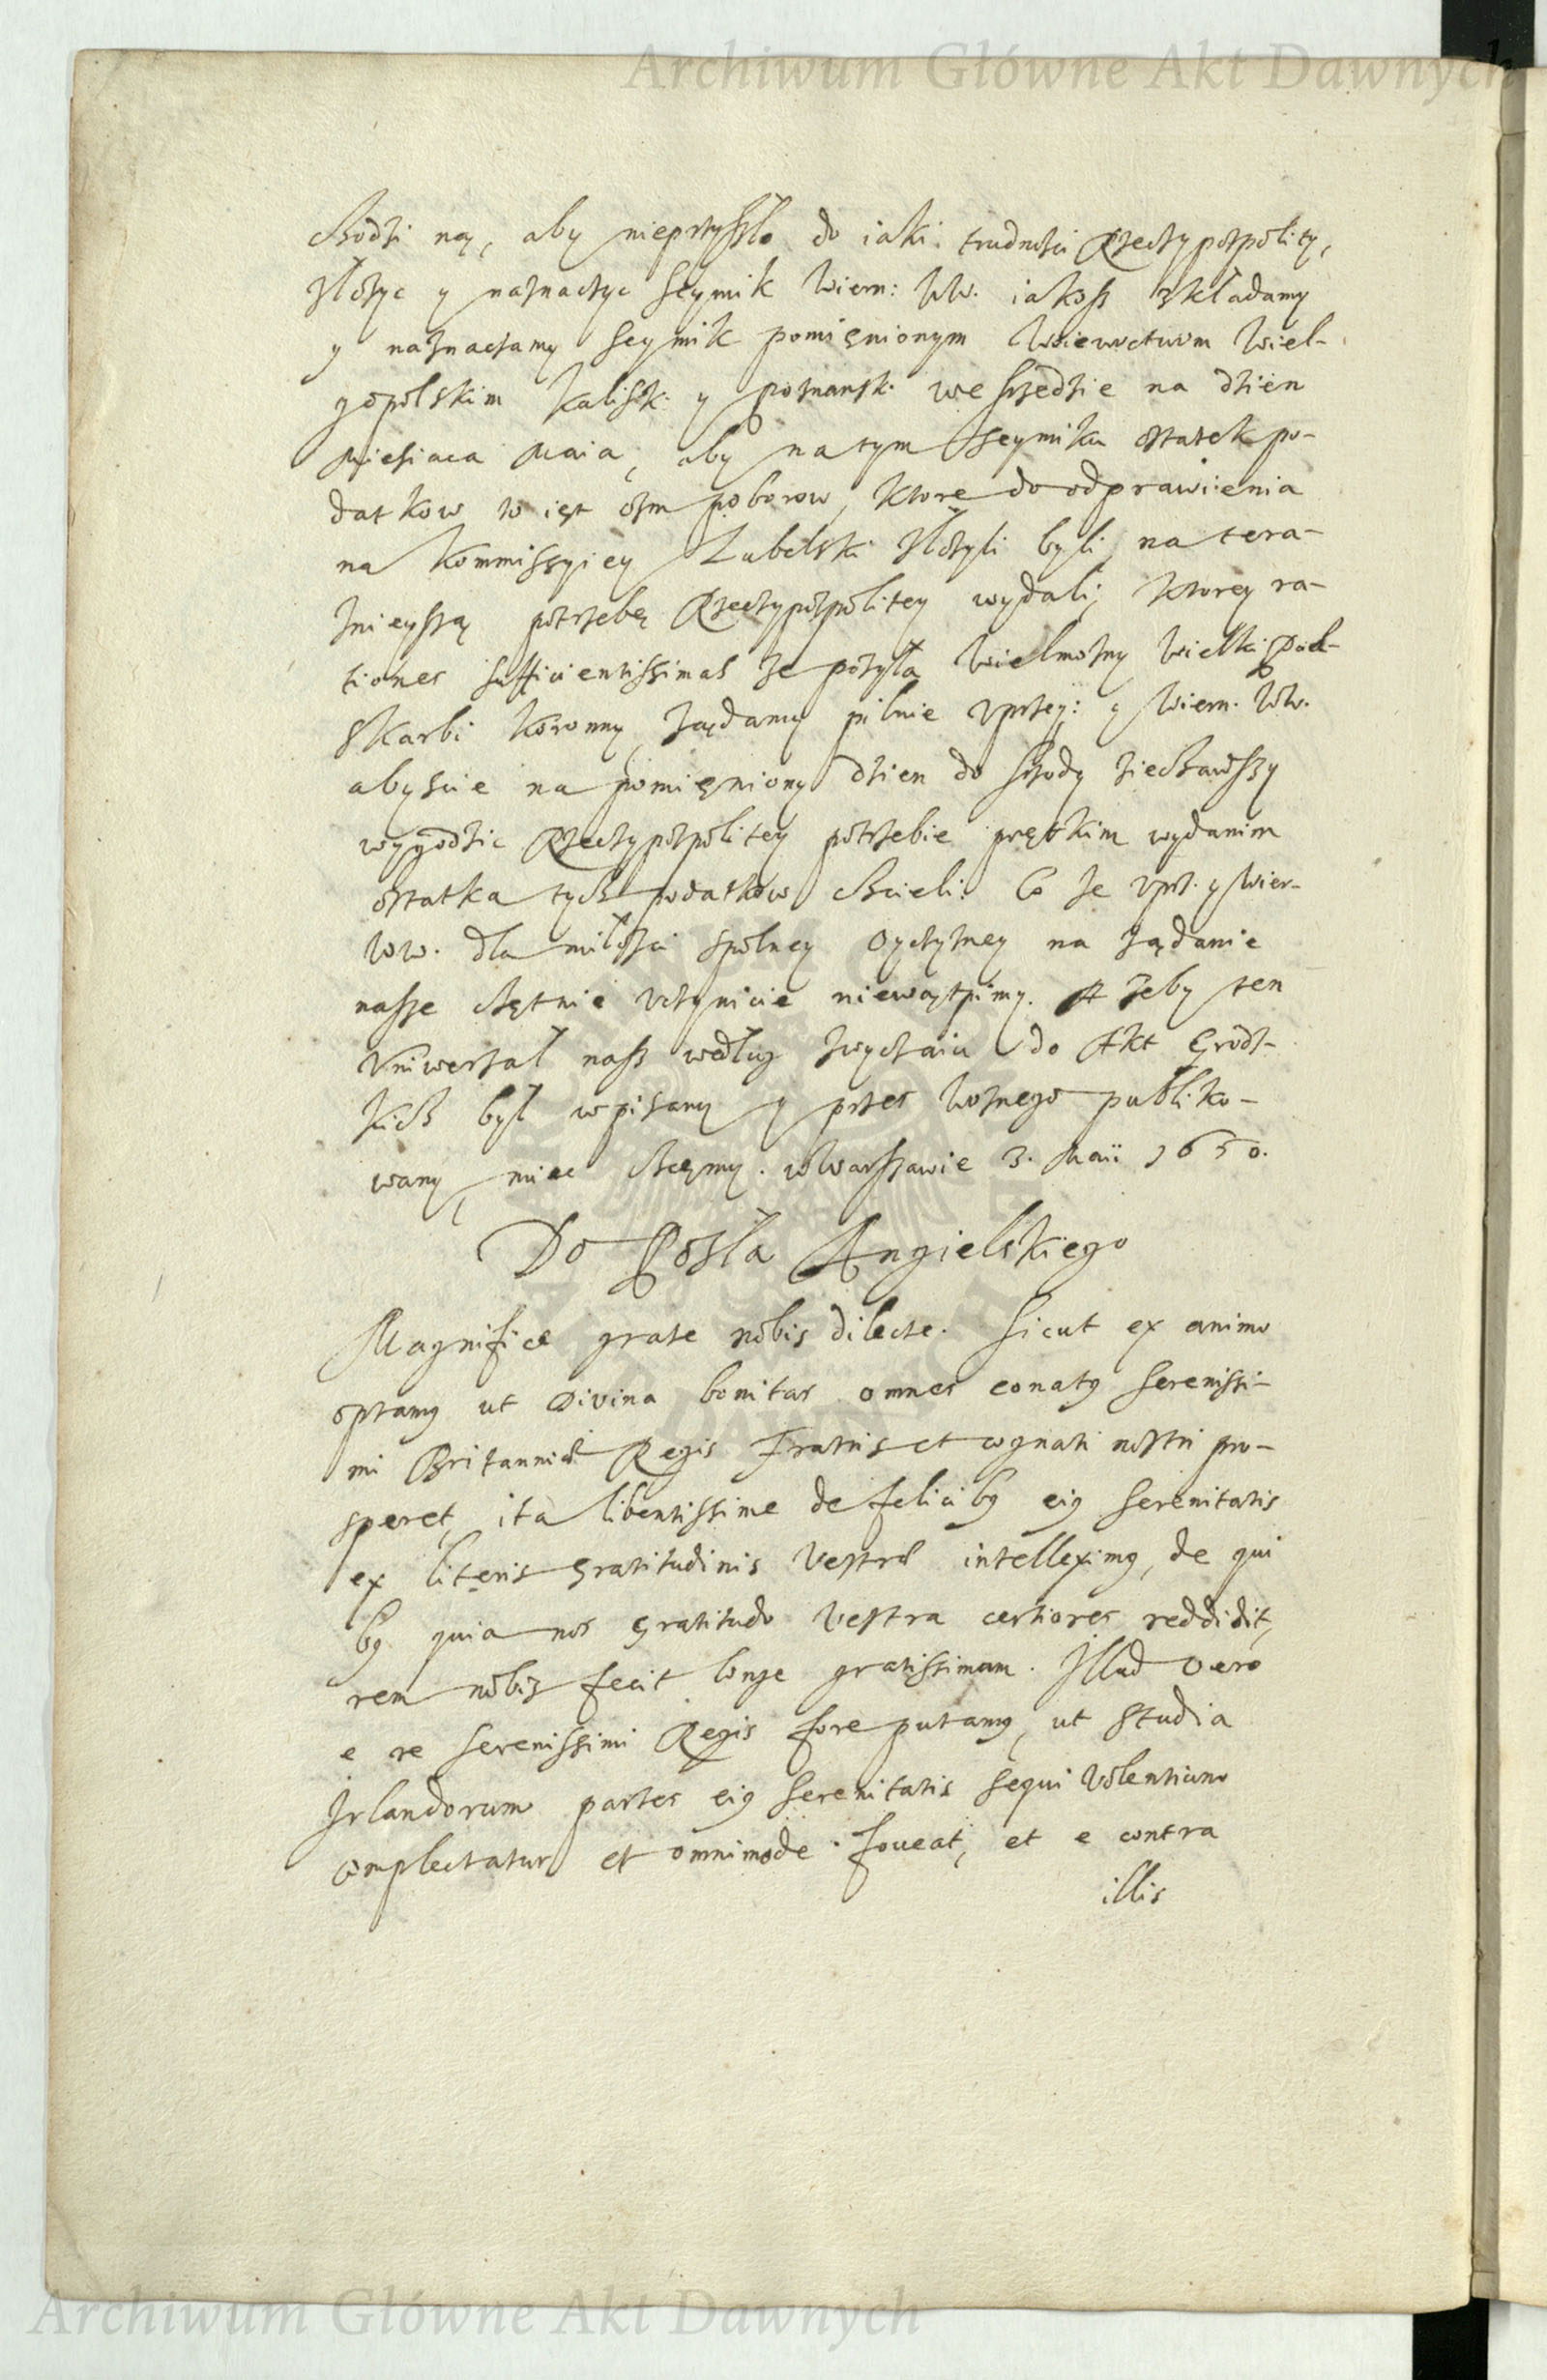 Archiwum Główne Akt Dawnych
chodzi ną, aby nieprzyszło do iaki: trudności Rzeczypospolity,
złożyc y naznaczyc Seymik Wiern: WW. iakosz zkładamy
y naznaczamy Seymik pomięnionym Woiewuctwom Wiel-
gopolskim Kalisk: y Poznansk: we Srzedzie na dzien
Miesiaca Maia, aby na tym Seymiku ostatek po-
datkow to iest osm poborow, ktore do odprawienia
na Kommissyiey Lubelski złożyli byli, na tera-
znieyszą potrzebę Rzeczypospolitey wydali, ktorey ra-
tiones sufficientissimas że posyła Wielmożny Wielki Pod-
skarbi Koronny, żądamy pilnie Vprzey: y Wiern. WW.
abyscie na pomięniony dzien do Srzody ziechawszy
wygodzic Rzeczypospolitey potrzebie pręthkim wydanim
ostatka tych podatkow chcieli. Co że vprz. y Wier-
WW. dla miłosci spolney Oyczyzney na żądanie
nasze chętnie vczynicie niewątpimy. A żeby ten
Vniwersał nasz według zwyczaiu do Akt Grodz-
kich był wpisany y przes Woznego publiko-
wany, miec chcemy. w Warszawie 3. Maii 1650.
Do Posła Angielskiego
Magnifice grate nobis dilecte. Sicut ex animo
optamꝰ ut Divina bonitas omnes conatꝰ Serenissi-
mi Britanniæ Regis Fratris et cognati nostri pro-
speret, ita libentissime de felicibꝰ eiꝰ Serenitatis
ex literis Gratitudinis Vestræ intelleximꝰ, de qui
bꝰ quia nos Gratitudo Vestra certiores reddidit,
rem nobis fecit longe gratissimam. Illud vero
e re Serenissimi Regis fore putamꝰ, ut studia
Irlandorum partes eiꝰ Serenitatis sequi volentium
complectatur et omnimode foveat, et e contra
illis
Archiwum Główne Akt Dawnych